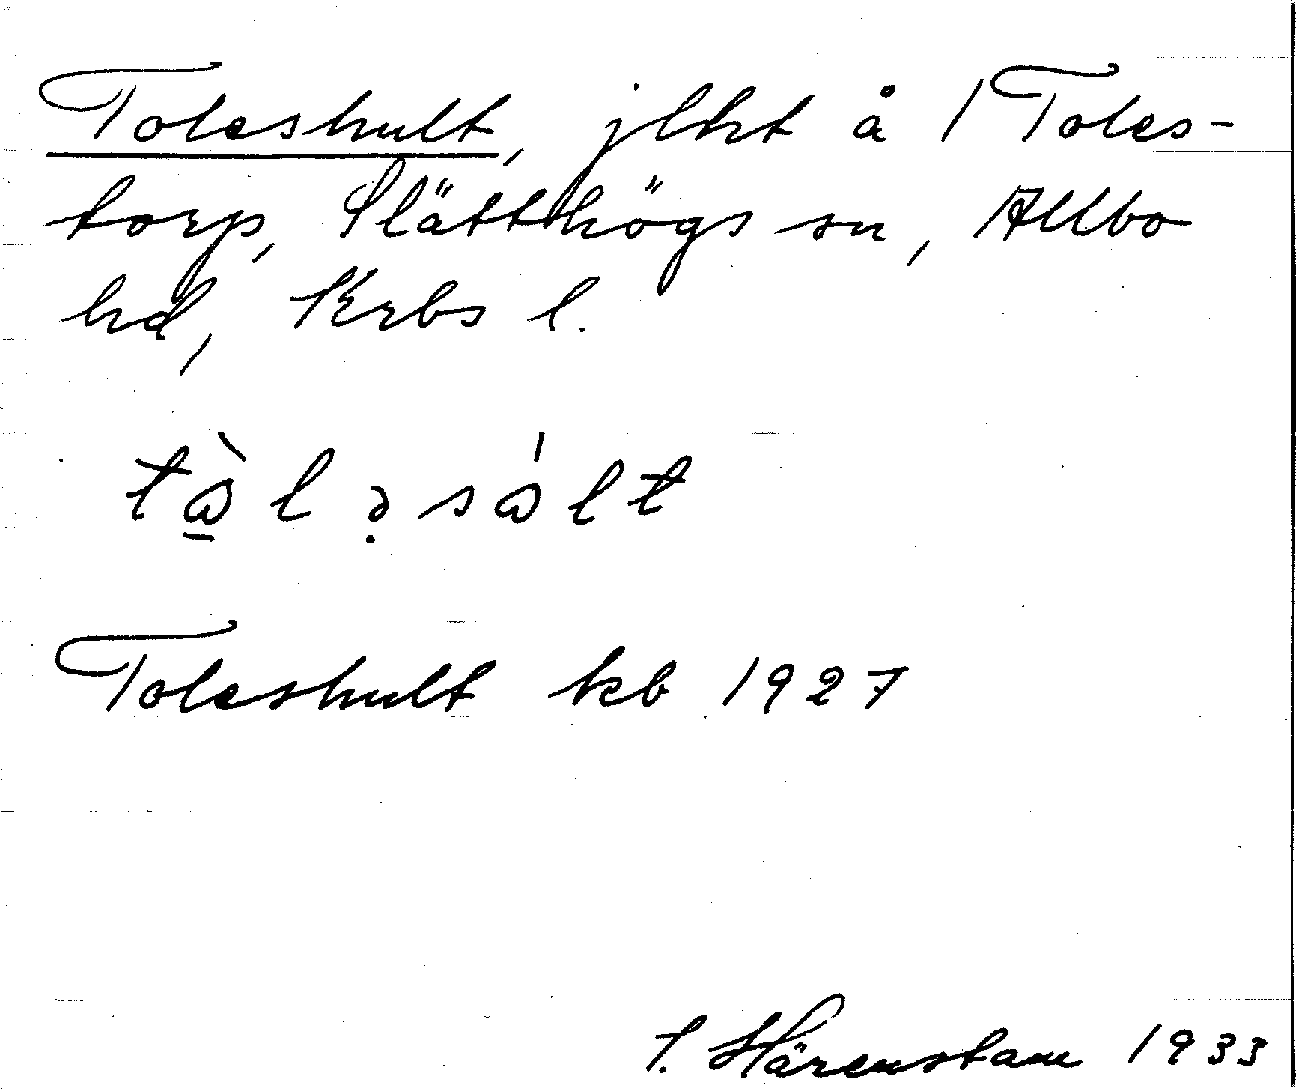 Toleshult, jlht å 1 Toles-
torp, Slätthögs sn, Allbo
hd, Krbs l.
tɷ̠̀lə̣sɷ́lt
Toleshult kb 1927
Härenstam 1933